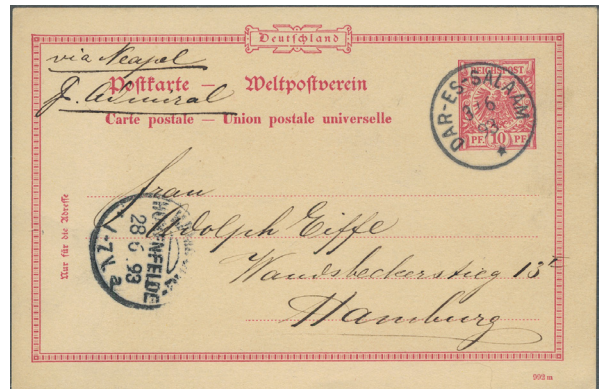 Deutschland
via Neapel
Postkarte — Weltpostverein
p. Admiral
Carte postale — Union postale universelle
REICHSPOST
PF 10 PF
DAR-ES-SALAAM
6
93
Nur für die Adresse
Frau
Adolph Eiffe
Wandsbeckerstieg 13
Hamburg
HOHENFELDE
28 6. 93
a
992 m